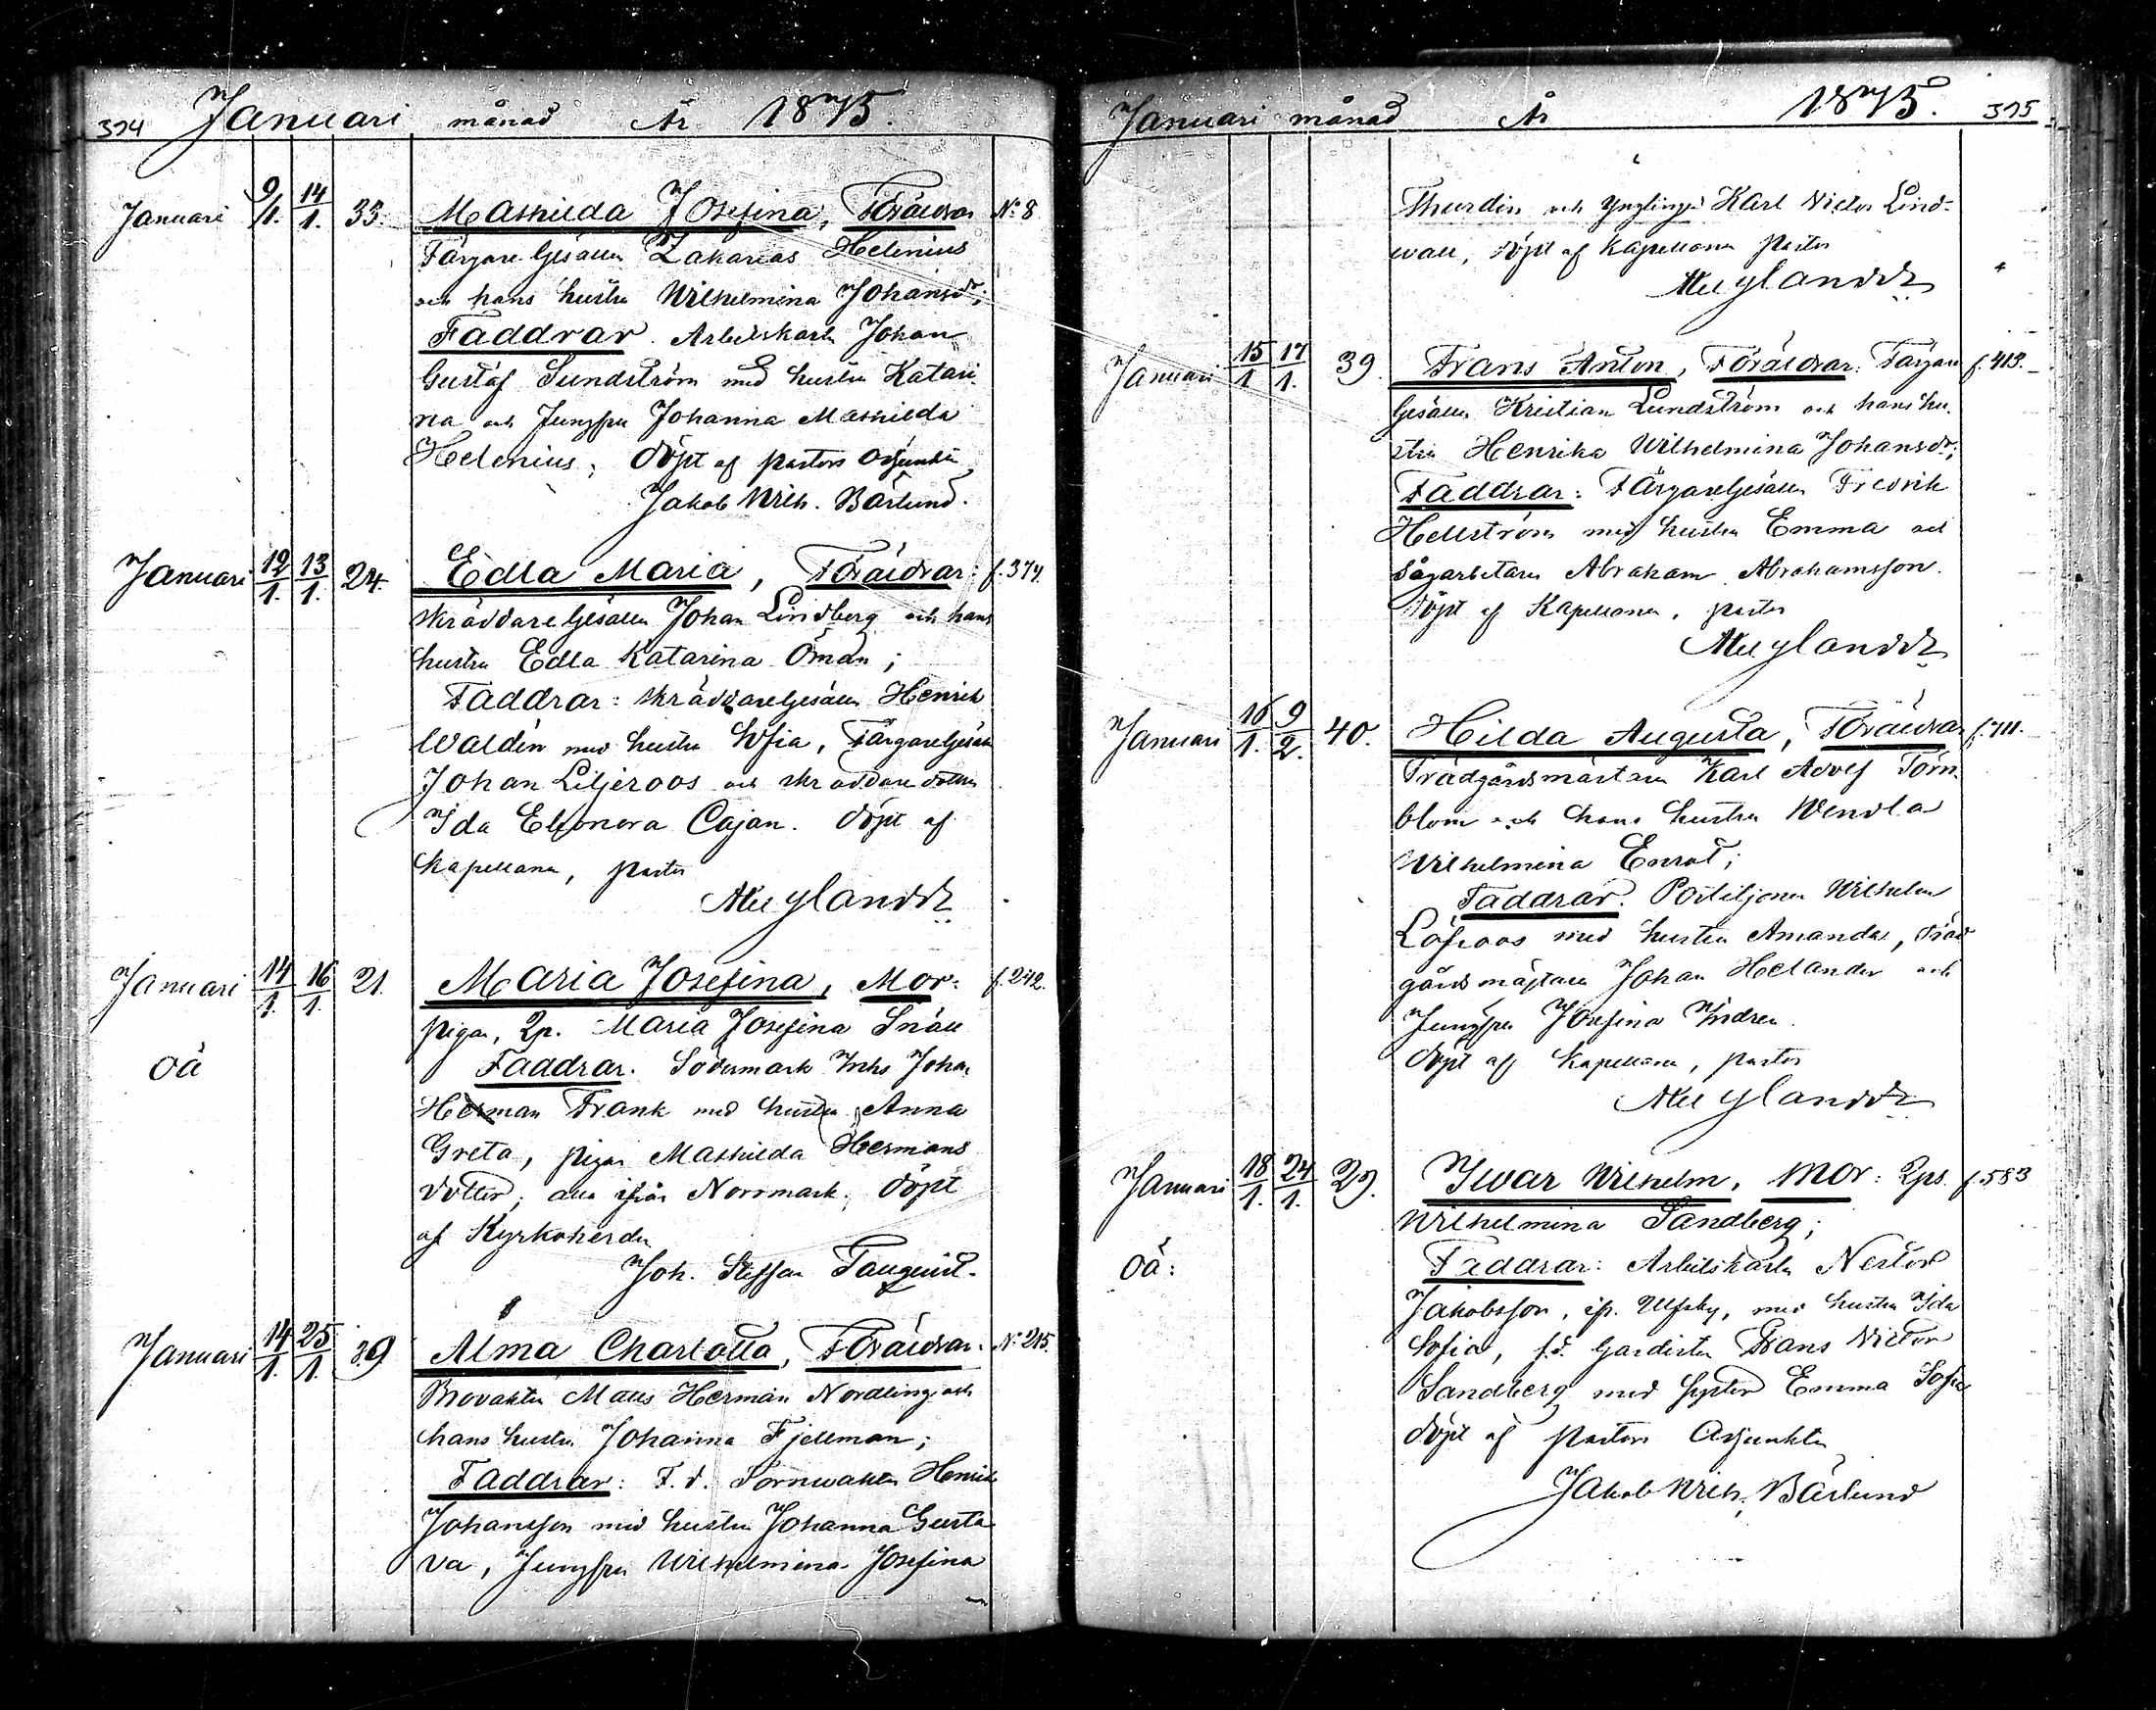 374 Januari månad År 1875.
Januari 9/1. 14/1. 33. Mathilda Josefina, Föräldrar No 8
Färgare Gesällen Zakarias Helenius
och hans hustru Wilhelmina Johansdr;
Faddrar. Arbetskarln Johan
Gustaf Sundström med hustru Katari
na och Jungfru Johanna Mathilda
Helenius; döpt af pastors adjunkten
Jakob Wilh. Bärlund.
Januari 12/1. 13/1. 24. Edla Maria, Föräldrar: f. 379.
skräddare Gesällen Johan Lindberg och hans
hustru Edla Katarina Öman;
Faddrar: skräddareGesällen Henrik
Waldén med hustru Sofia, FärgareGesälln
Johan Liljeroos och skräddare dottern
Ida Eleonora Cajan. döpt af
Kapellanen, pastor
Nylandr
Januari 14/1. 16/1. 21. Maria Josefina, Mor: f. 242.
pigan, Lp. Maria Josefina Snäll
Faddrar. Södermark Inhs Johan
Herman Frank med hustru Anna
Greta, pigan Mathilda Hermans
dotter; alla ifrån Norrmark. döpt
af Kyrkoherden
Joh. Steffan Tauquist.
oä
Januari 14/1. 25/1. 39 Alma Charlotta, Föräldrar. No 215.
Brovakten Matts Herman Nordling och
hans hustru Johanna Fjellman;
Faddrar: F.d. Tornvakten Henrik
Johansson med hustru Johanna Gusta
va, Jungfru Wilhelmina Josefina
Januari månad År 1875. 375
Thurdin och Ynglingen Karl Victor Lind-
wall, döpt af Kapellanen pastor
Nylandr
Januari 15/1 17/1. 39. Frans Anton, Föräldrar: Färgare f. 413.
Gesällen Kristian Lundström och hans hu
stru Henrika Wilhelmina Johansdr;
Faddrar: FärgareGesällen Fredrik
Hellström med hustru Emma och
Sågarbetaren Abraham Abrahamsson.
döpt af Kapellanen, pastor
Nylandr
Januari 16/1. 9/2. 40. Hilda Augusta, Föräldrar f. 711.
Trädgårdsmästaren Karl Adolf Törn
blom och hans hustru Wendla
Wilhelmina Enrot;
Faddrar. Postiljonen Wilhelm
Löfroos med hustru Amanda, Träd
gårdsmästaren Johan Helander och
Jungfru Josefina Indren
döpt af Kapellanen, pastor
Nylandr
Januari 18/1. 24/1. 29. Iwar Wilhelm, Mor: Lps. f. 583
Wilhelmina Sandberg;
oä: Faddrar: Arbetskarln Nestor
Jakobsson, ifr. Ulfsby, med hustru Ida
Sofia, f.d. Gardisten Frans Victor
Sandberg med syster Emma Sofia
döpt af pastors Adjunkten
Jakob Wilh. Bärlund